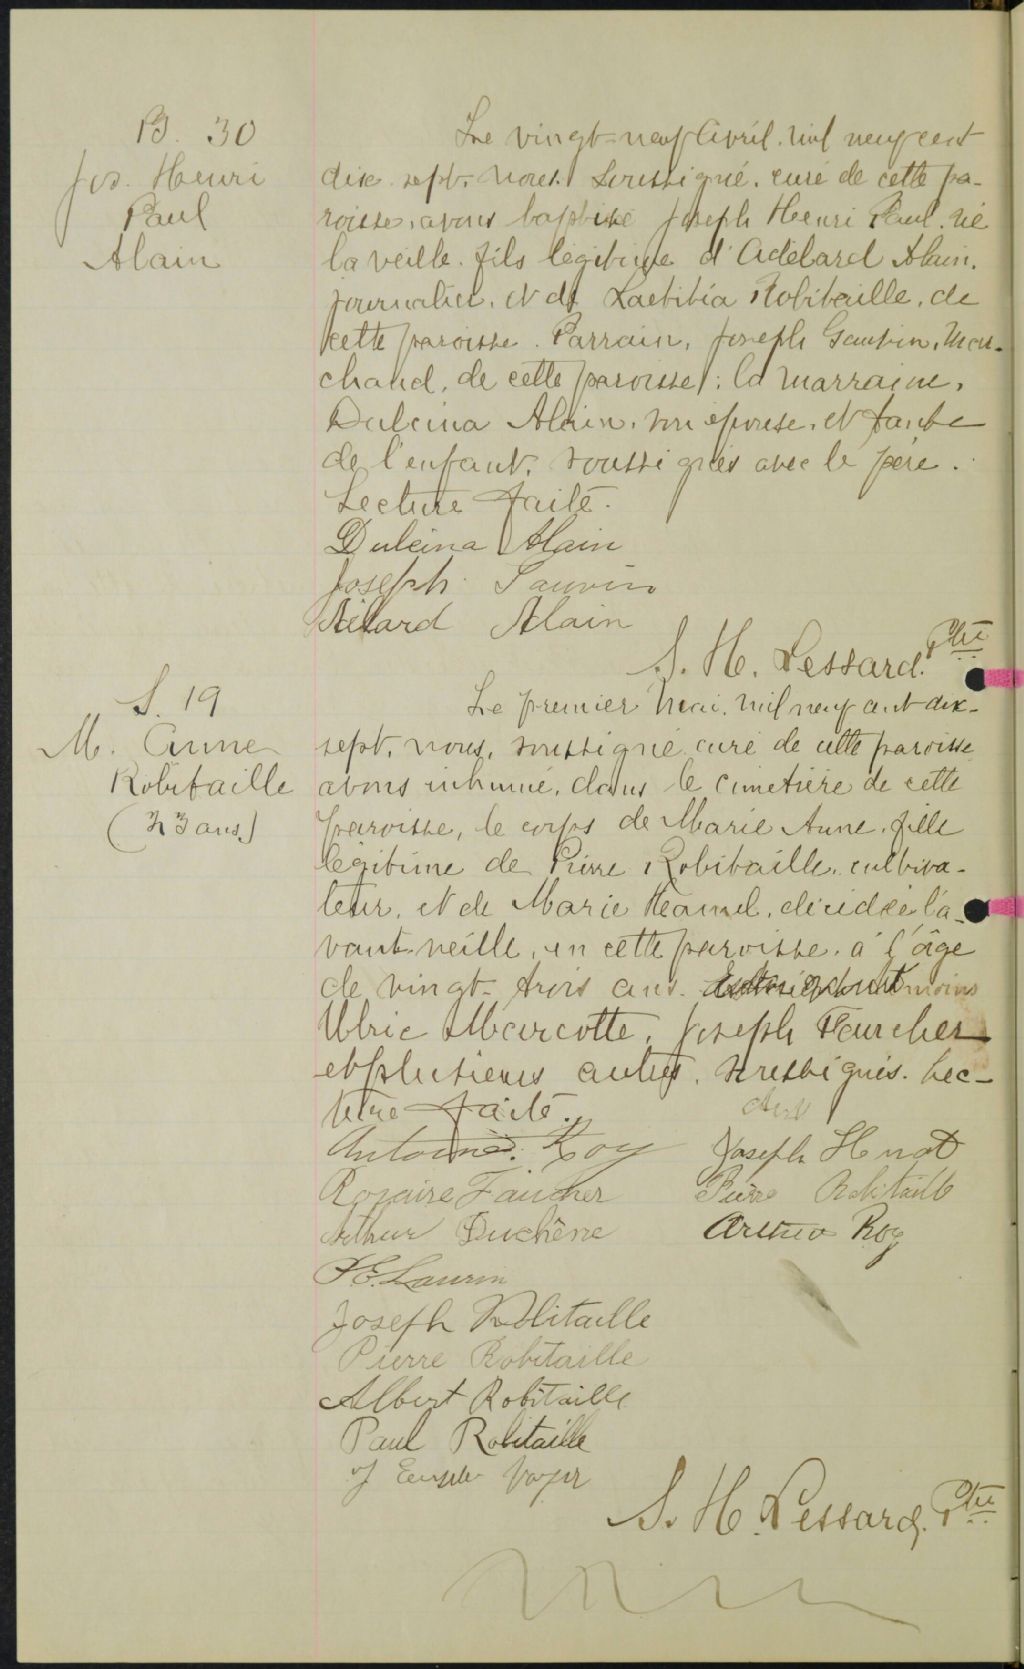 B. 30
Jos. Henri
Paul
Alain
Le vingt-neuf Avril, mil neuf cent
dix-sept, nous, soussigné, curé de cette pa-
roisse, avons baptisé Joseph Henri Paul, né
la veille, fils légitime d'Adélard Alain,
journalier, et de Laetitia Robitaille, de
cette paroisse. Parrain, Joseph Gauvin, Mar-
chand, de cette paroisse; la marraine,
Dulcina Alain, son épouse, et tante
de l'enfant, soussignés avec le père.
Lecture faite.
Dulcina Alain
Joseph Gauvin
Alain
S. H. Lessard. Ptre
S. 19
M. Anne
Robitaille
(23 ans)
Le premier Mai, mil neuf cent dix-
sept, nous, soussigné curé de cette paroisse
avons inhumé, dans le cimetière de cette
paroisse, le corps de Marie Anne, fille
légitime de Pierre Robitaille, cultiva-
teur, et de Marie Hamel, décédée l'a-
vant-veille, en cette paroisse, à l'âge
de vingt-trois ans. témoins
Ulric Marcotte, Joseph Faucher
et plusieurs autres, soussignés. Lec-
ture faite.
Antoine Roy Joseph Huot
Rosaire Faucher Pierre Robitaille
Arthur Duchêne Roy
P. E. Laurin
Joseph Robitaille
Pierre Robitaille
Albert Robitaille
Paul Robitaille
J Voyer
S. H. Lessard. Ptre